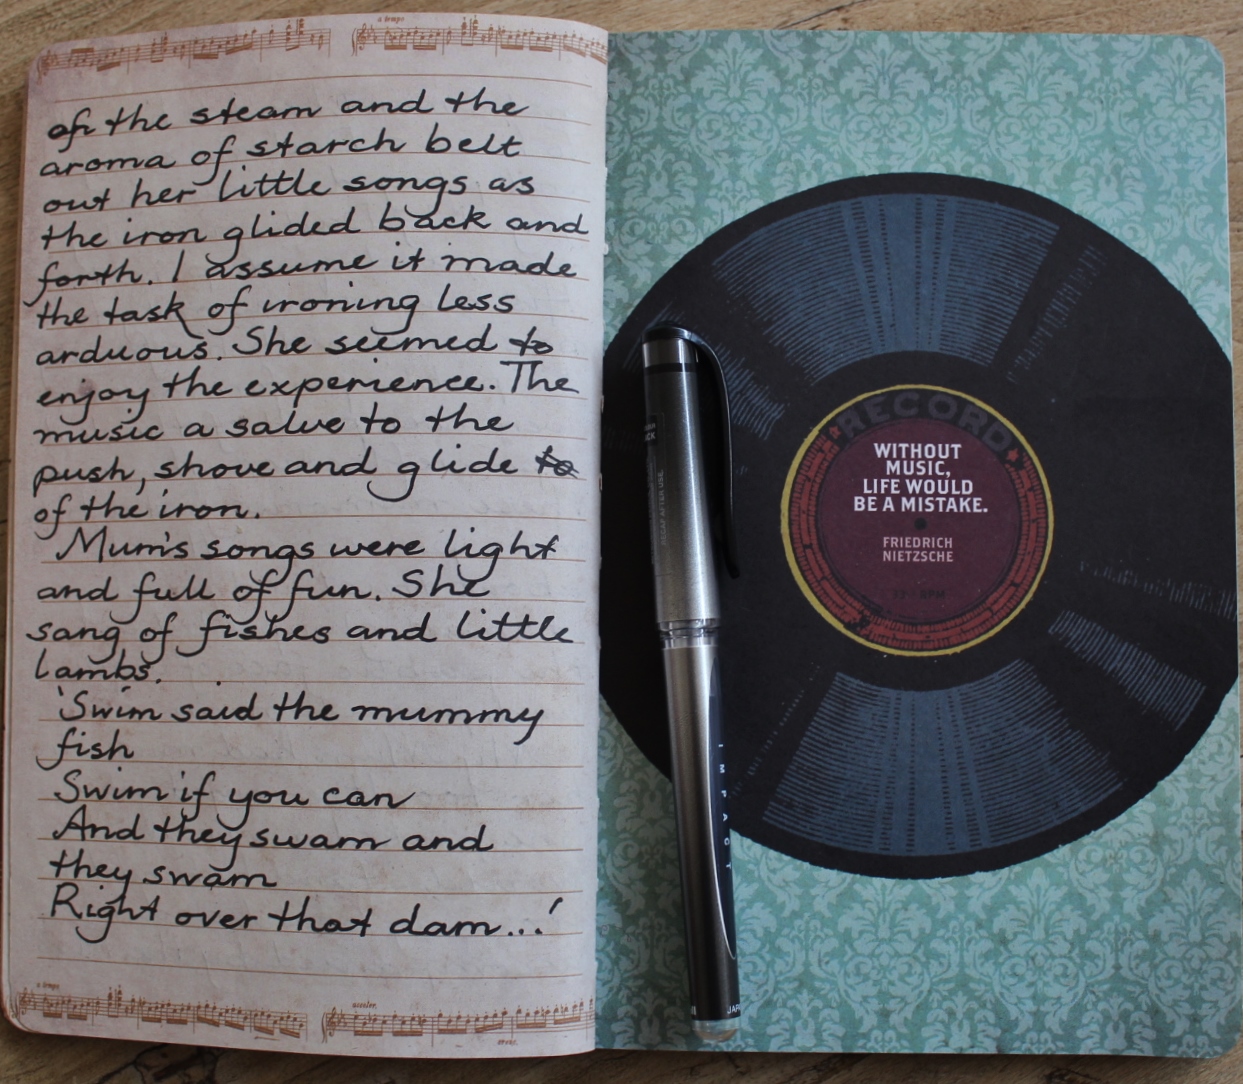 of the steam and the
aroma of starch belt
out her little songs as
the iron glided back and
forth. I assume it made
the task of ironing less
arduous. She seemed to
enjoy the experience. The
music a salve to the
push, shove and glide to
of the iron.
Mum's songs were light
and full of fun. She
sang of fishes and little
lambs.
'Swim said the mummy
fish
Swim if you can
And they swam and
they swam
Right over that dam...'
a tempo
a tempo
acceler.
RECORD
WITHOUT
MUSIC,
LIFE WOULD
BE A MISTAKE.
FRIEDRICH
NIETZSCHE
RPM
RECAP AFTER USE
IMPACT